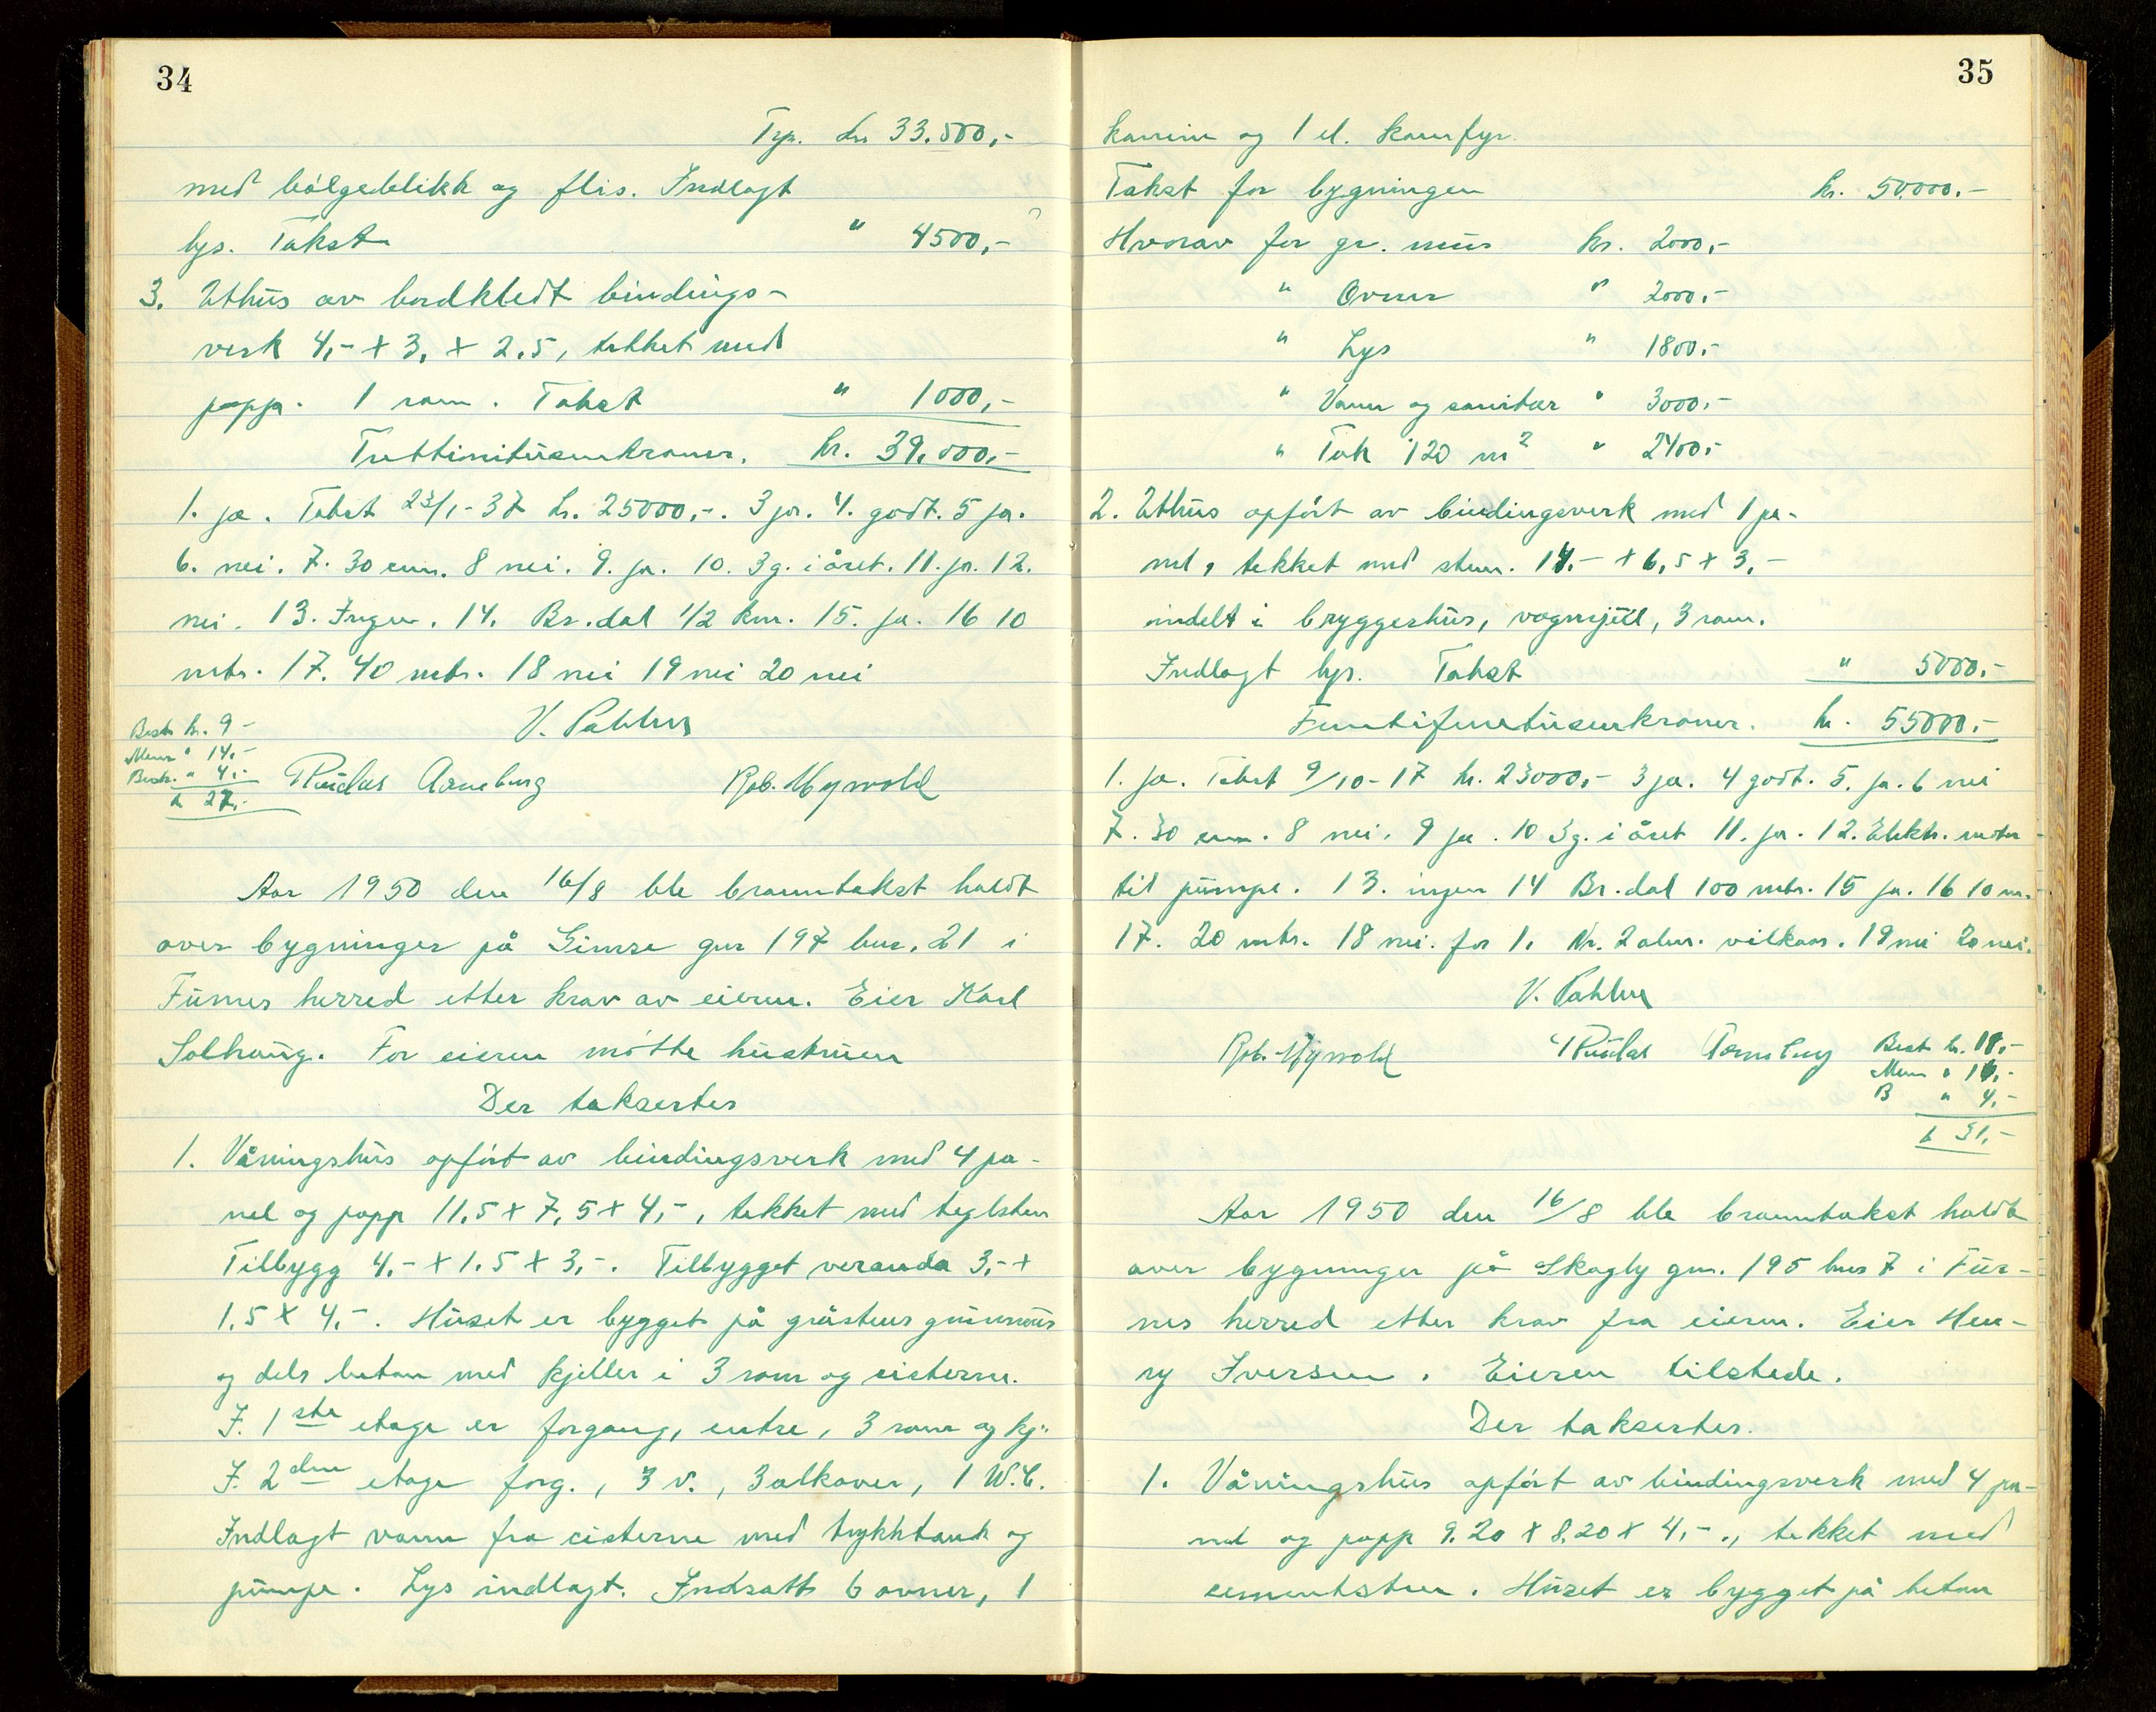 34
Trp. kr 33.500,-
med bölgeblikk og flis. Indlagt
lys. Takst " 4500,-
3. Uthus av bordkledt bindings-
verk 4,- + 3, + 2,5, tekket med
papp. 1 rom. Takst " 1000,-
Trettinitusenkroner. kr. 39.000,-
1. ja. Takst 23/1-37 kr. 25000,-. 3 ja. 4. godt. 5 ja.
6. nei. 7. 30 cm. 8 nei. 9. ja. 10. 3 g. i året. 11. ja. 12.
nei. 13. Ingen. 14. Br.dal 1/2 km. 15. ja. 16 10
mtr. 17. 40 mtr. 18 nei 19 nei 20 nei
V. Pahlus
Best kr. 9 -
Menn " 14,-
Bestr. " 4,-
k 27,-
Arneburg Rob. Myrvold
Aar 1950 den 16/8 ble branntakst holdt
over bygninger på Gimse gnr 197 bnr. 21 i
Furnes herred etter krav av eieren. Eier Karl
Solhaug. For eieren mötte hustruen
Der taksertes
1. Våningshus opfört av bindingsverk med 4 pa-
nel og papp 11,5 + 7,5 + 4,-, tekket med teglsten
Tilbygg 4,- + 1.5 + 3,-. Tilbygget veranda 3,- +
1.5 x 4,-. Huset er bygget på gråstens grunnmur
og dels beton med kjeller i 3 rom og cisterne.
I. 1ste etage er forgang, entre, 3 rom og kj.
I. 2den etage forg., 3 v., 3 alkover, 1 W.C.
Indlagt vann fra cisterne med trykktank og
pumpe. Lys indlagt. Indsatt 6 ovner, 1
35
kamin og 1 el. komfyr.
Takst for bygningen kr. 50.000.-
Hvorav for gr. mur kr. 2000,-
" Ovner " 2000,-
" Lys " 1800,-
" Vann og sanitær " 3000,-
" Tak 120 m2 " 2400,-
2. Uthus opfört av bindingsverk med 1 pa-
nel, tekket med sten. 14.- + 6,5 + 3,-
indelt i bryggeshus, vognsjul, 3 rom.
Indlagt lys. Takst " 5000,-
Femtifemtusenkroner. kr. 55000,-
1. ja. Takst 9/10-17 kr. 23000,- 3 ja. 4 godt. 5. ja. 6 nei
7. 30 cm. 8 nei. 9 ja. 10 3 g. i året 11. ja. 12. Elektr. motor
til pumpe. 13. ingen 14 Br.dal 100 mtr. 15 ja. 16 10 m.
17. 20 mtr. 18 nei. for 1. Nr. 2 alm. vilkaar. 19 nei 20 nei.
V. Pahlus
Rob. Myrvold Arneburg
Best kr.
Menn "
B " 4,-
k 31,-
Aar 1950 den 16/8 ble branntakst holdt
over bygninger på Skogly gnr. 195 bnr 7 i Fur-
nes herred etter krav fra eieren. Eier Hen-
ry Iversen. Eieren tilstede.
Der taksertes.
1. Våningshus opfört av bindingsverk med 4 pa-
nel og papp 9.20 x 8.20 x 4,-., tekket med
cementsten. Huset er bygget på beton